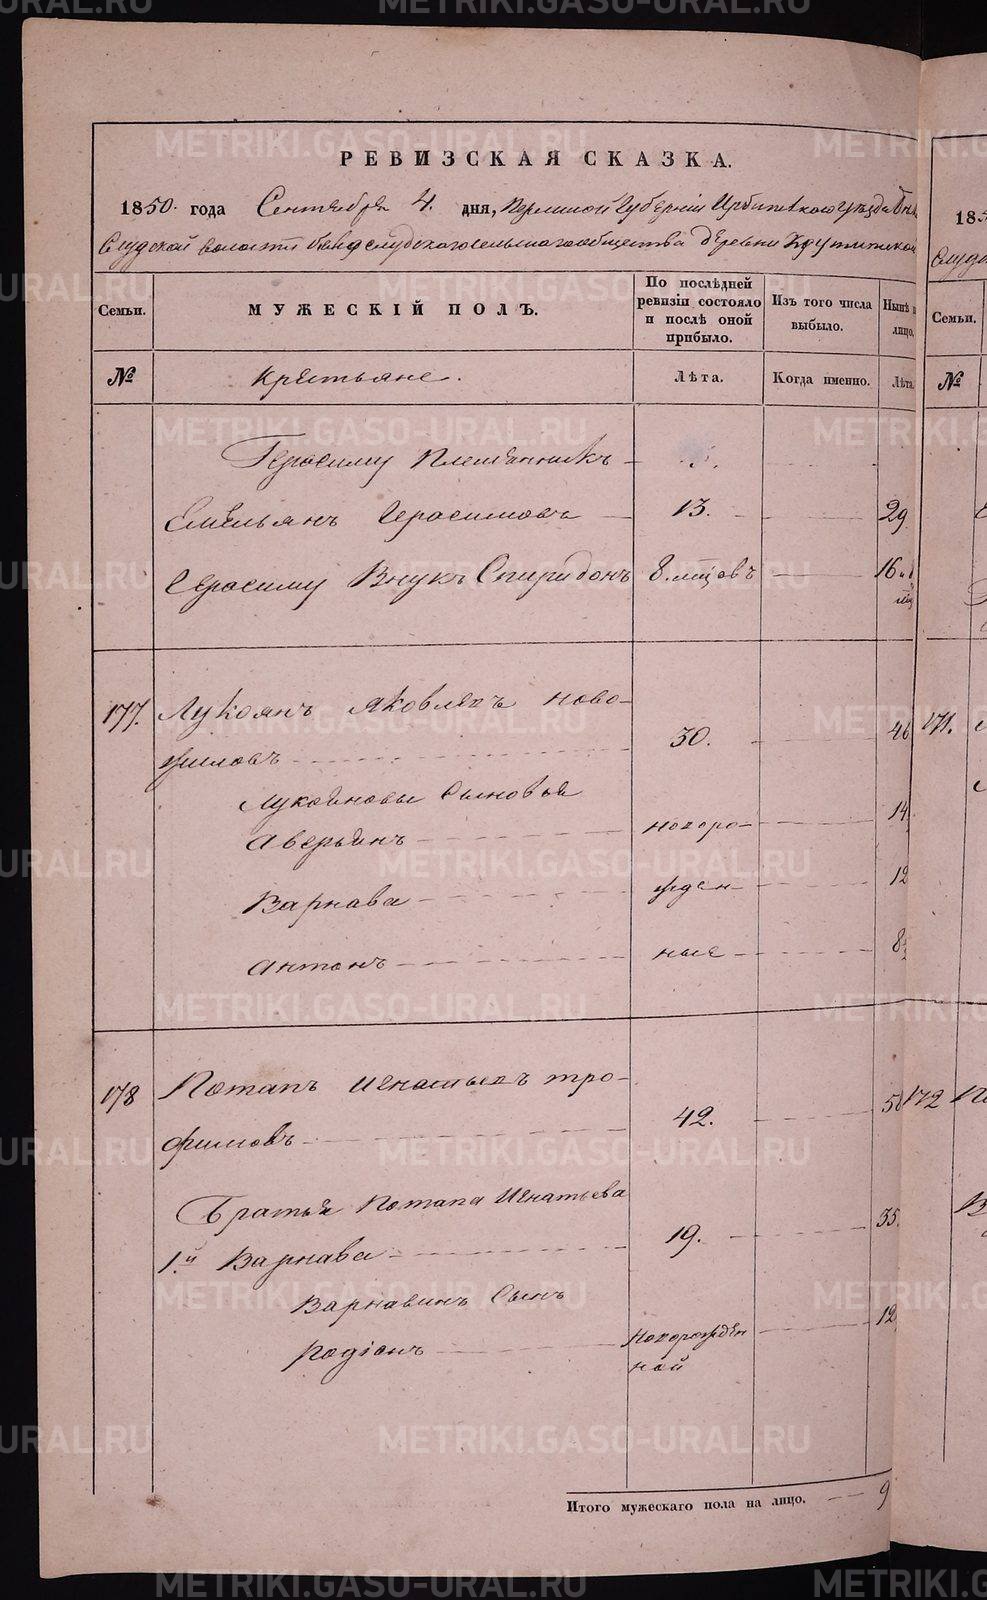 РЕВИЗСКАЯ СКАЗКА.
1850. года Сентября 4. дня, Пермской Губернiи Ирбитскаго уѣзда Бѣло
слудской волости Бѣлослудскаго сельскаго общества деревни
Семьи. МУЖЕСКІЙ ПОЛЪ. По послѣдней ревизіи состояло и послѣ оной прибыло. Изъ того числа выбыло. Нынѣ на лицо.
№ Крестьяне. Лѣта. Когда именно. Лѣта.
Герасиму племянникъ
Емельянъ Герасимовъ 13. 29
Герасиму Внукъ Спиридонъ 8. мцовъ 16 и 8
мц
177. Лукоянъ Яковлевъ Ново-
жиловъ 30. 46
Лукояновы Сыновья
Аверьянъ новоро- 14
Варнава жден- 12
Антонъ ные 8½
178 Потапъ Игнатьевъ Тро-
фимовъ 42. 58
Братья Потапа Игнатьева
1.й Варнава 19. 35.
Варнавинъ Сынъ
Родіонъ новорожден 12
ной
Итого мужескаго пола на лицо. 9
185
слудс
Семьи.
№
171.
172 По
METRIKI.GASO-URAL.RU